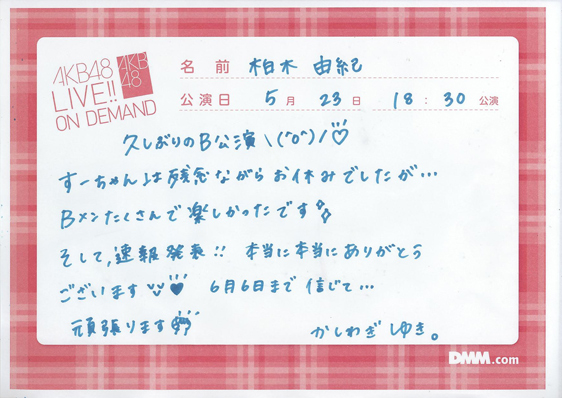 AKB48
LIVE!!
ON DEMAND
AKB
48
名前 柏木 由紀
公演日 5月 23日 18:30公演
久しぶりのB公演\(^o^)/♡
すーちゃんは残念ながらお休みでしたが…
Bメンたくさんで楽しかったです
そして,速報発表!! 本当に本当にありがとう
ございます♥ 6月6日まで信じて…
頑張ります
かしわぎ ゆき。
DMM.com